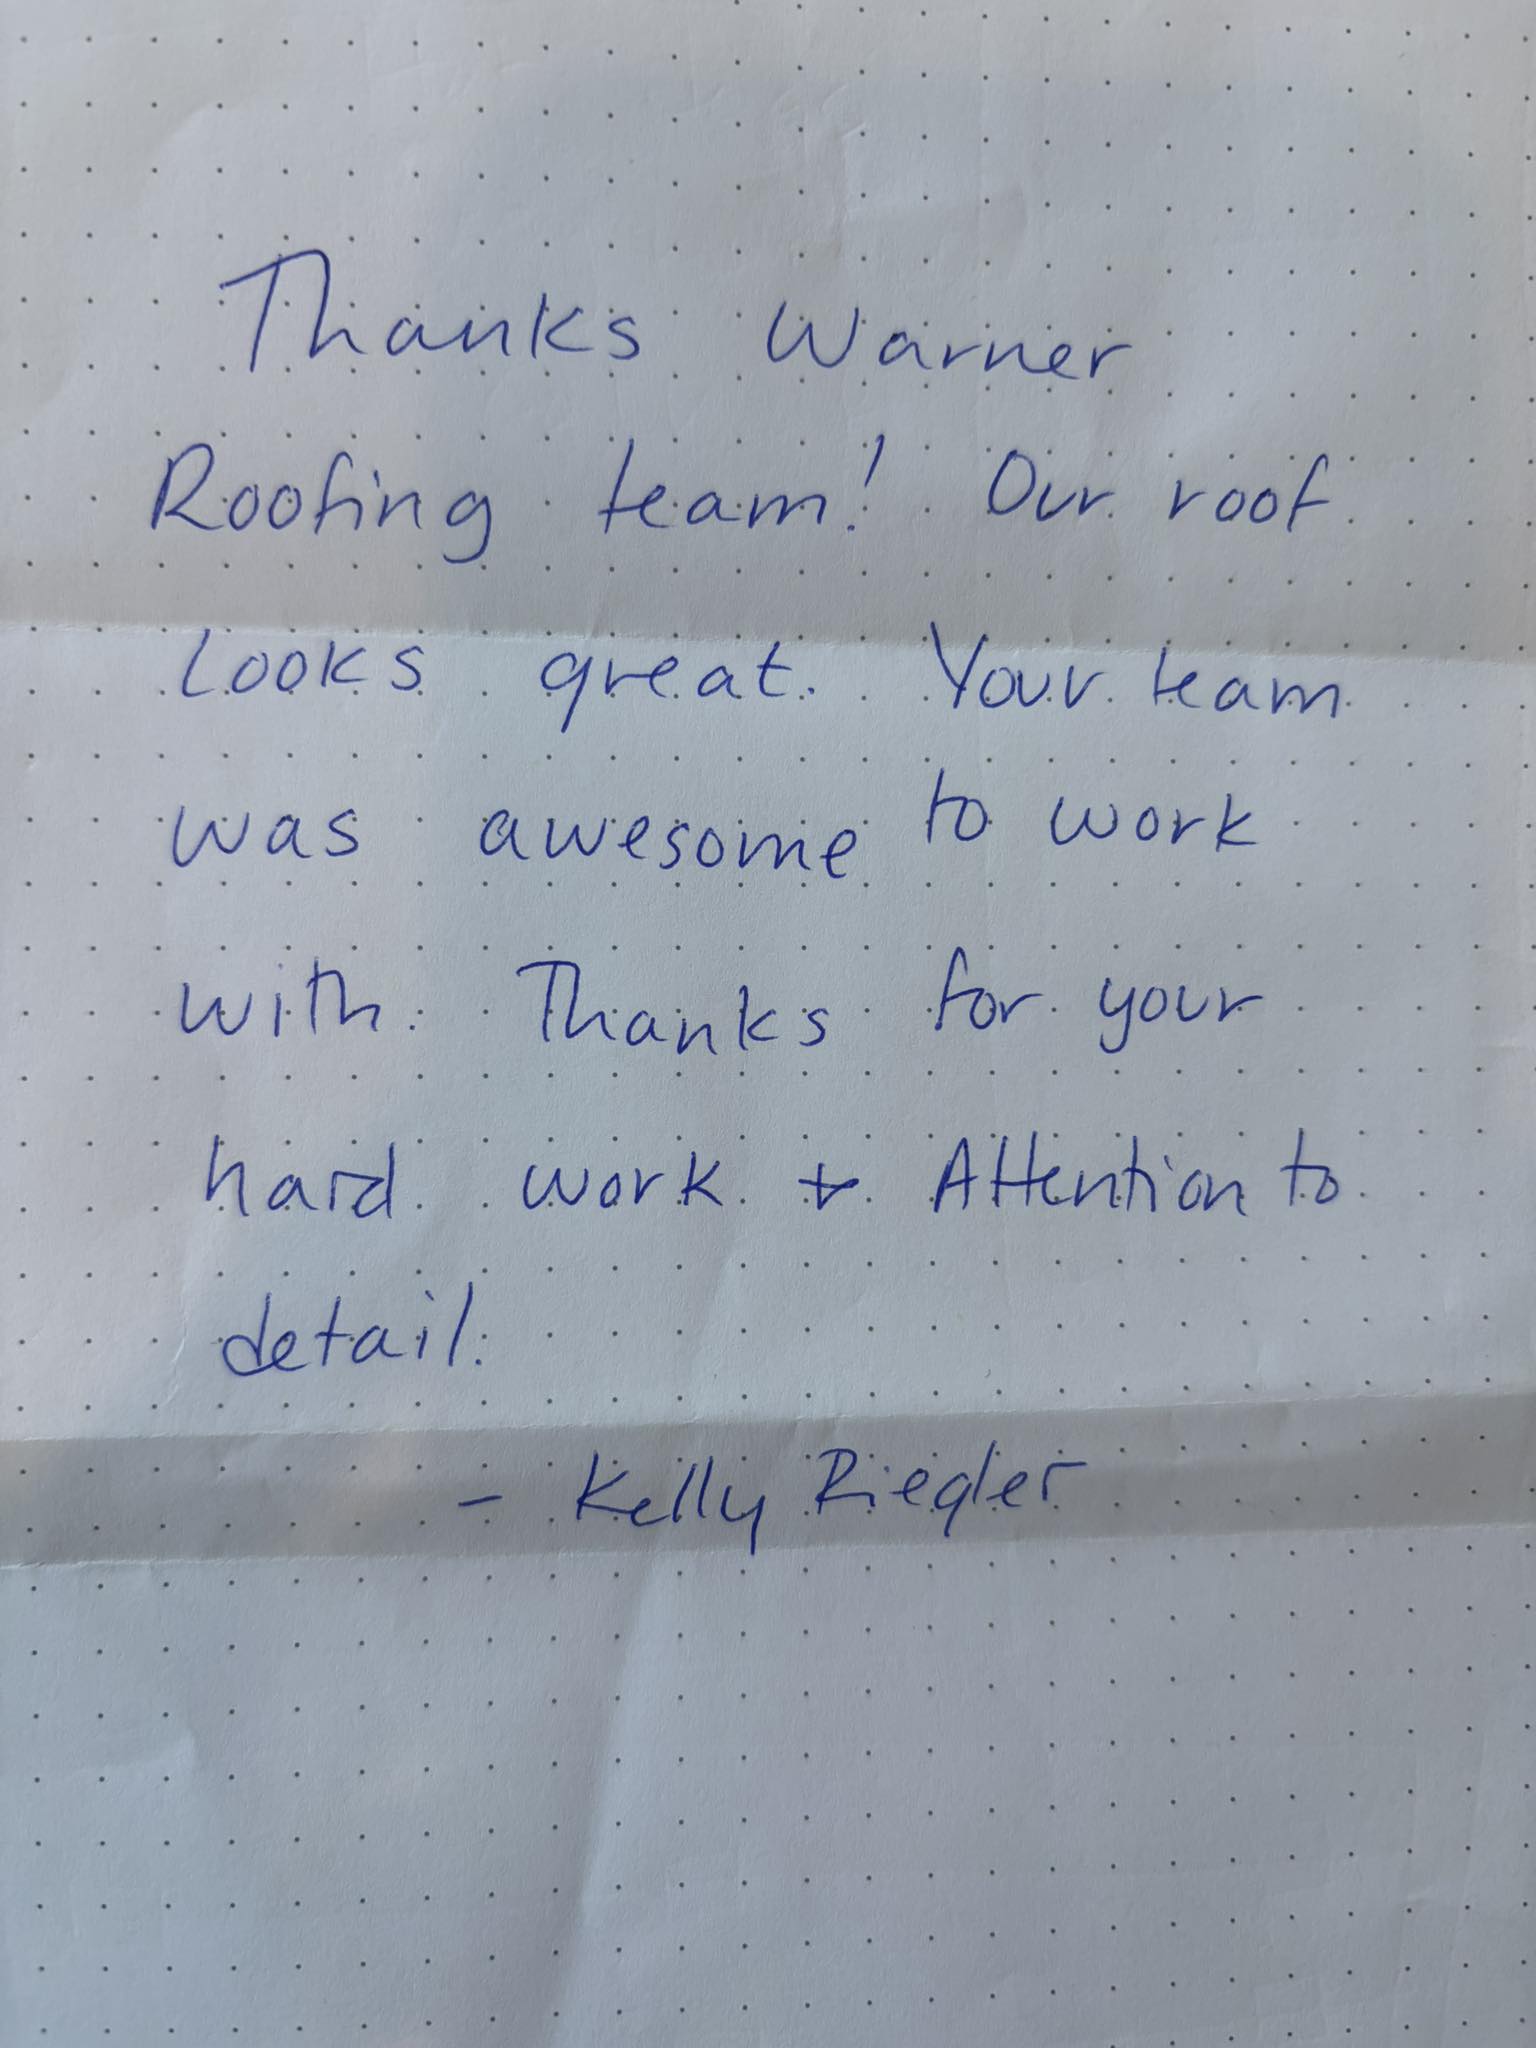 Thanks Warner
Roofing team! Our roof
looks great. Your team
was awesome to work
with. Thanks for your
hard work + Attention to
detail.
- Kelly Riegler